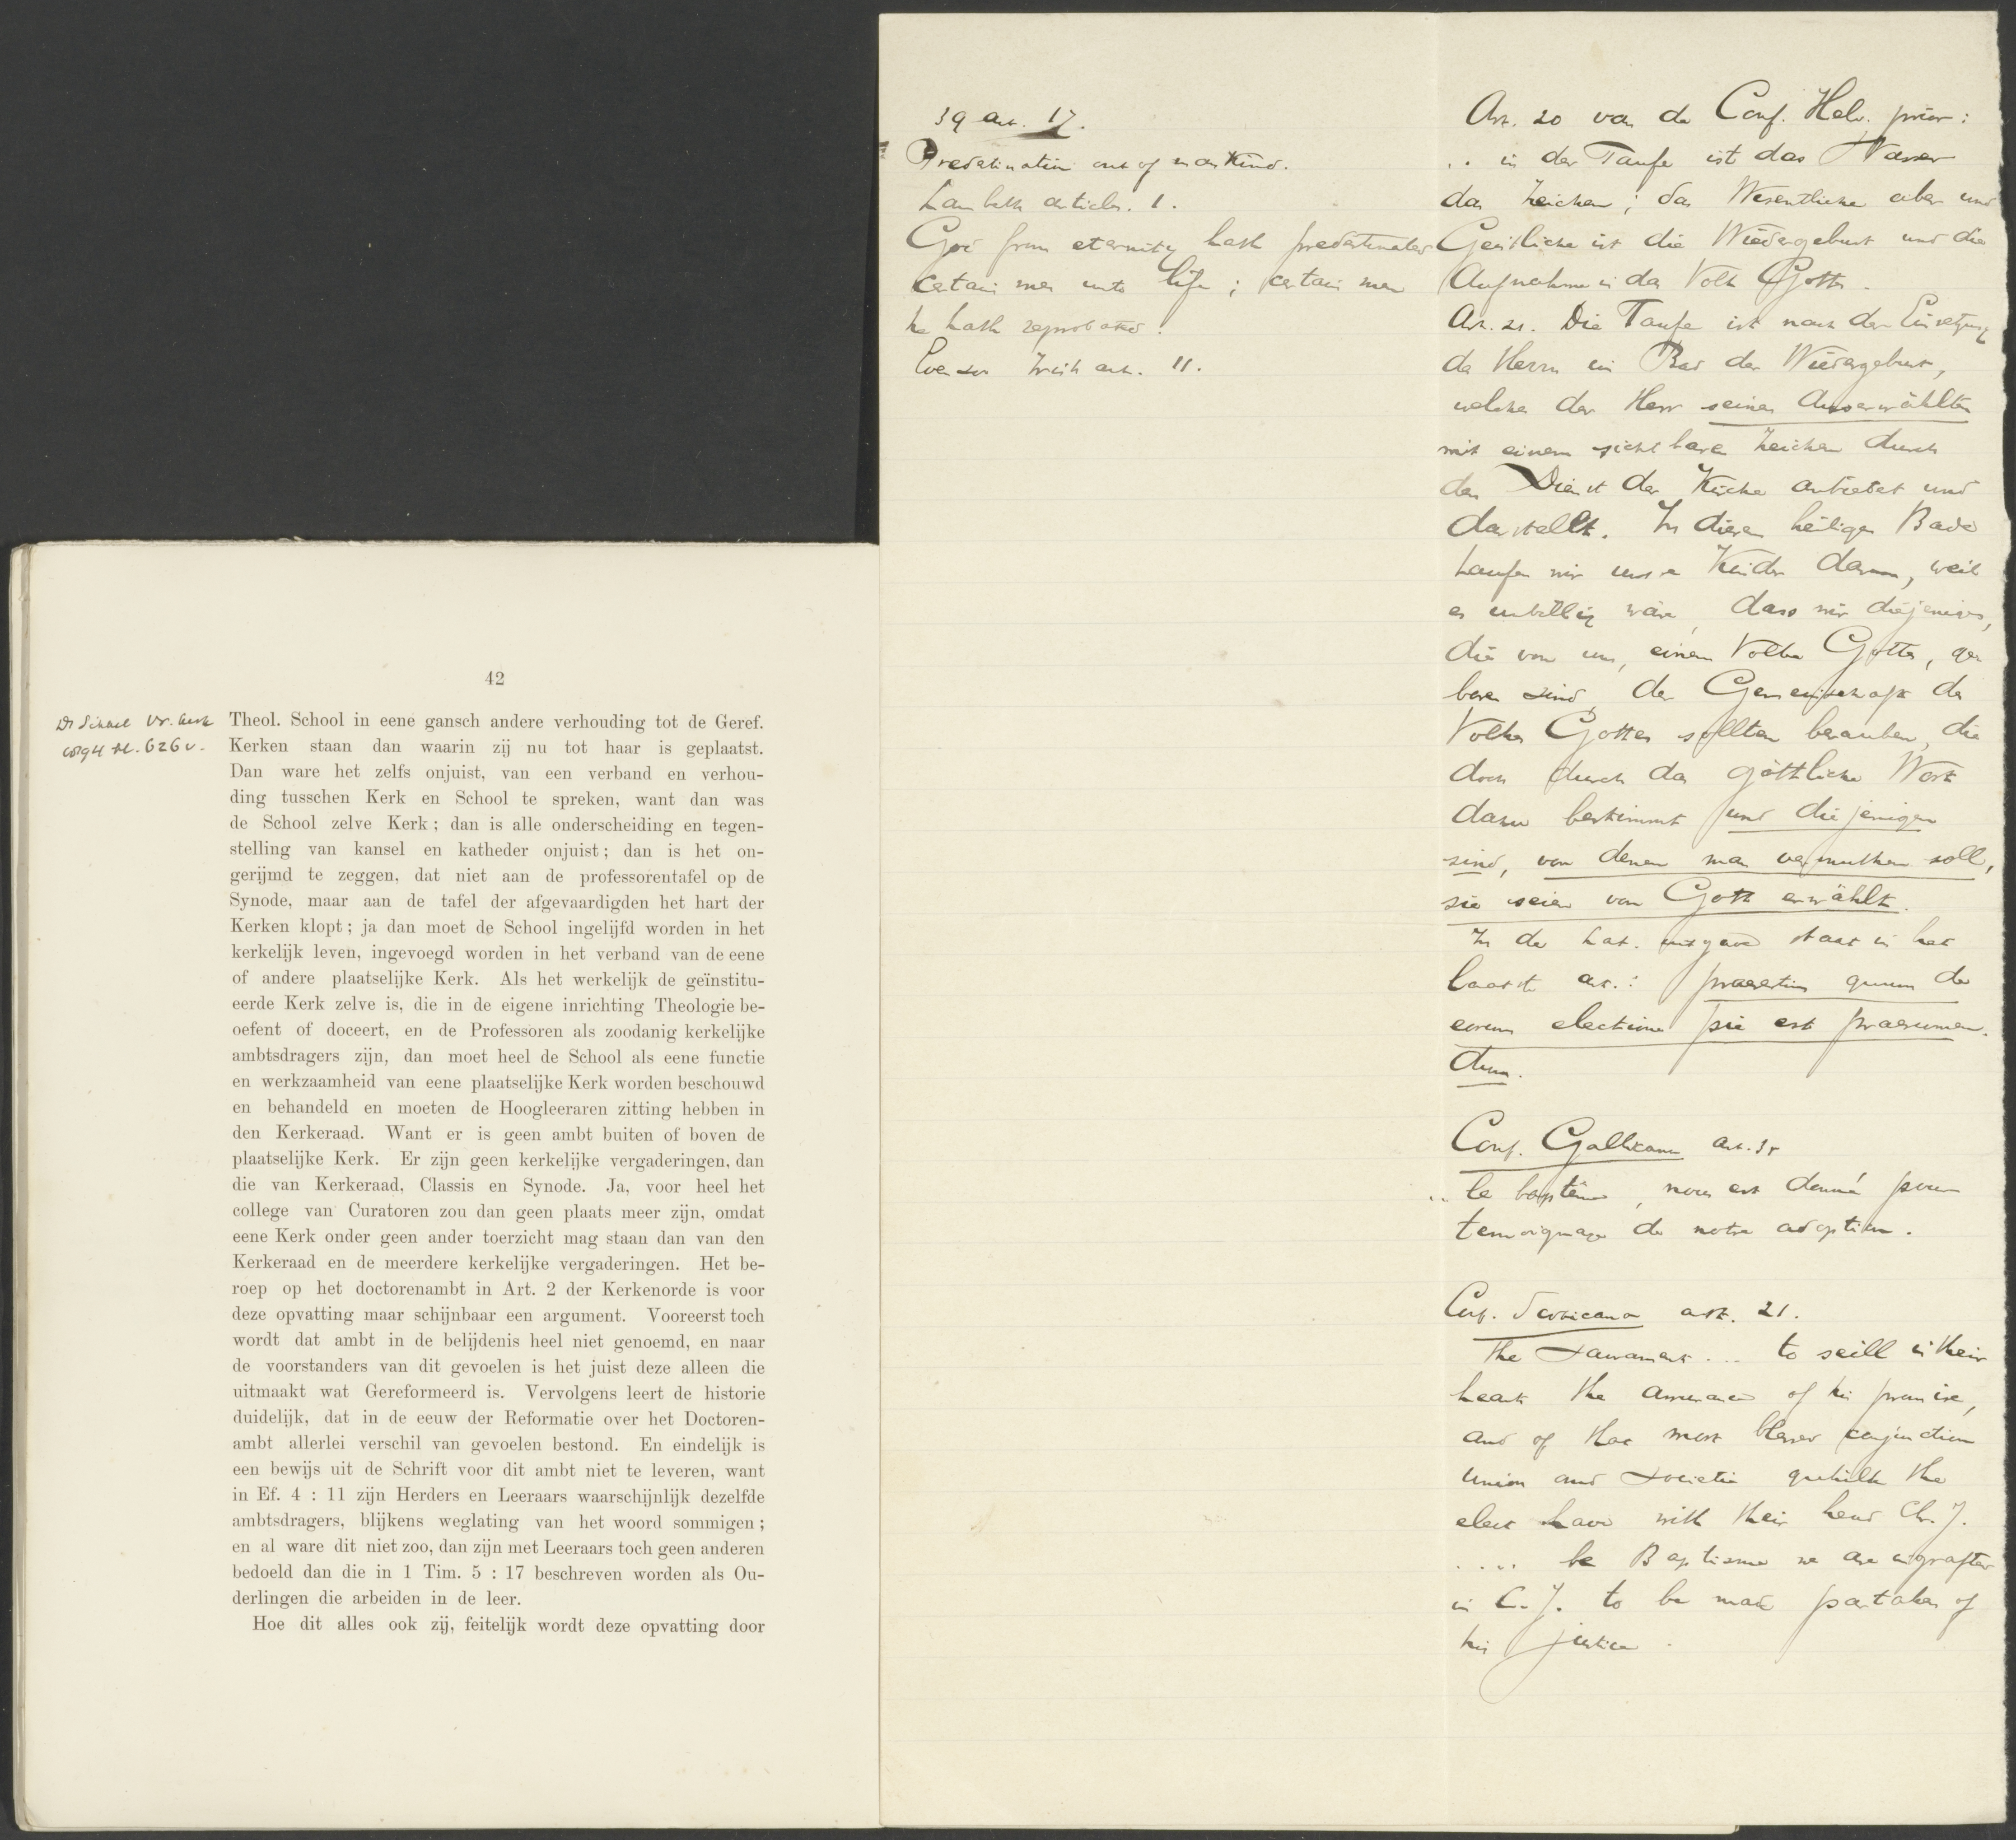 42
Theol. School in eene gansch andere verhouding tot de Geref.
Kerken staan dan waarin zij nu tot haar is geplaatst.
Dan ware het zelfs onjuist, van een verband en verhou-
ding tusschen Kerk en School te spreken, want dan was
de School zelve Kerk; dan is alle onderscheiding en tegen-
stelling van kansel en katheder onjuist; dan is het on-
gerijmd te zeggen, dat niet aan de professorentafel op de
Synode, maar aan de tafel der afgevaardigden het hart der
Kerken klopt; ja dan moet de School ingelijfd worden in het
kerkelijk leven, ingevoegd worden in het verband van de eene
of andere plaatselijke Kerk. Als het werkelijk de geïnstitu-
eerde Kerk zelve is, die in de eigene inrichting Theologie be-
oefent of doceert, en de Professoren als zoodanig kerkelijke
ambtsdragers zijn, dan moet heel de School als eene functie
en werkzaamheid van eene plaatselijke Kerk worden beschouwd
en behandeld en moeten de Hoogleeraren zitting hebben in
den Kerkeraad. Want er is geen ambt buiten of boven de
plaatselijke Kerk. Er zijn geen kerkelijke vergaderingen, dan
die van Kerkeraad, Classis en Synode. Ja, voor heel het
college van Curatoren zou dan geen plaats meer zijn, omdat
eene Kerk onder geen ander toerzicht mag staan dan van den
Kerkeraad en de meerdere kerkelijke vergaderingen. Het be-
roep op het doctorenambt in Art. 2 der Kerkenorde is voor
deze opvatting maar schijnbaar een argument. Vooreerst toch
wordt dat ambt in de belijdenis heel niet genoemd, en naar
de voorstanders van dit gevoelen is het juist deze alleen die
uitmaakt wat Gereformeerd is. Vervolgens leert de historie
duidelijk, dat in de eeuw der Reformatie over het Doctoren-
ambt allerlei verschil van gevoelen bestond. En eindelijk is
een bewijs uit de Schrift voor dit ambt niet te leveren, want
in Ef. 4 : 11 zijn Herders en Leeraars waarschijnlijk dezelfde
ambtsdragers, blijkens weglating van het woord sommigen;
en al ware dit niet zoo, dan zijn met Leeraars toch geen anderen
bedoeld dan die in 1 Tim. 5 : 17 beschreven worden als Ou-
derlingen die arbeiden in de leer.
Hoe dit alles ook zij, feitelijk wordt deze opvatting door
39 art. 17.
Predestination out of mankind.
Lambeth articles. 1.
God from eternity hath predestinated
certain men unto life; certain men
he hath reprobated.
Evenzo Irish art. 11.
Art. 20 van de Conf. Helv. prior:
.. in der Taufe ist das Wasser
das Zeichen; das Wesentliche aber und
Geistliche ist die Wiedergeburt und die
Aufnahme in das Volk Gottes.
Art. 21. Die Taufe ist nach der Einsetzung
des Herrn ein Bad der Wiedergeburt,
welches der Herr seinen Auserwählten
mit einem sichtbaren Zeichen durch
den Dienst der Kirche anbietet und
darstellt. In diesem heiligen Bade
taufen wir unsere Kinder darum, weil
es unbillig wäre, dass wir diejenigen,
die von uns, einem Volke Gottes, ge
boren sind, der Gemeinschaft des
Volkes Gottes sollten berauben, die
doch durch das göttliche Wort
dazu bestimmt und diejenigen
sind, von denen man vermuthen soll,
sie seien von Gott erwählt.
In de Lat. uitgave staat in het
laatste art.: praesertim quum de
eorum electione pie est praesumen-
dum.
Conf. Gallicana art. 35
.. le baptême, nous est donné pour
temoignage de notre adoption.
Conf. Scoticana art. 21.
The Sacrament ... to seill in their
hearts the assurance of his promise,
and of that most blessed conjunction
union and societie quhilk the
elect have with their head Chr. J.
.... be Baptisme we are ingrafted
in C. J. to be made partakers of
his justice.